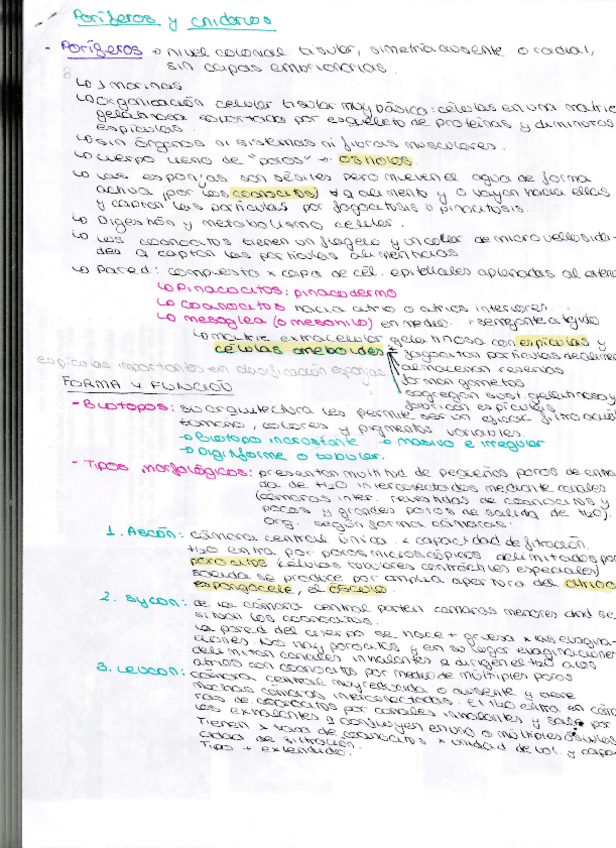 Poríferos y cnidarios
- Poríferos → nivel colonial tisular, simetría ausente o radial,
sin capas embrionarias.
↳ marinas
↳ Organización celular tisular muy básica: células en una matriz
gelatinosa soportadas por esqueleto de proteínas y diminutas
espículas.
↳ sin órganos ni sistemas ni fibras musculares.
↳ cuerpo lleno de "poros" → ostiolos
↳ Las esponjas son sésiles pero mueven el agua de forma
activa (por los coanocitos) alimento y o vayan hacia ellas
y captan las partículas por fagocitosis o pinocitosis.
↳ Digestión y metabolismo celular.
↳ Los coanocitos tienen un flagelo y un collar de microvellosida-
des captan las partículas alimenticias
↳ Pared: compuesta x capa de cél. epiteliales aplanadas al exterior
↳ Pinacocitos: pinacodermo
↳ coanocitos hacia atrio o atrios interiores.
↳ mesoglea (o mesohilo) en medio. semejante a tejido
↳ matriz extracelular gelatinosa con espículas y
células ameboides
fagocitan partículas de alimen
almacenan reservas
forman gametos
segregan sust. gelatinosa y
fabrican espículas
espículas importantes en clasificación esponjas
FORMA Y FUNCIÓN
- Biotopos: su arquitectura les permite ser un eficaz filtro acuát
tamaño, colores y pigmentos variables.
→ Biotopo incrustante → masivo e irregular
→ Digiforme o tubular.
- Tipos morfológicos: presentan multitud de pequeños poros de entra-
da de H2O interconectados mediante canales
(cámaras inter. revestidas de coanocitos y
pocos y grandes poros de salida de H2O).
Org. según forma cámaras:
1. Ascón: cámara central única. < capacidad de filtración.
H2O entra por poros microscópicos delimitados por
porocitos (células tubulares contráctiles especiales)
salida se produce por amplia apertura del atrio
espongocele, el ósculo.
2. Sycon: de la cámara central parten cámaras menores dnd se
sitúan los coanocitos.
La pared del cuerpo se hace + gruesa x las evagina-
ciones. No hay porocitos y en su lugar evaginaciones
delimitan canales inhalantes q dirigen el H2O a los
atrios con coanocitos por medio de múltiples poros
3. Leucon: cámara central muy reducida o ausente y
muchas cámaras interconectadas. El H2O entra en cáma
ras de coanocitos por canales inhalantes y sale por
los exhalantes q confluyen en uno o múltiples ósculos
Tienen > tasa de coanocitos x unidad de vol. y capa
cidad de filtración.
Tipo + extendido.